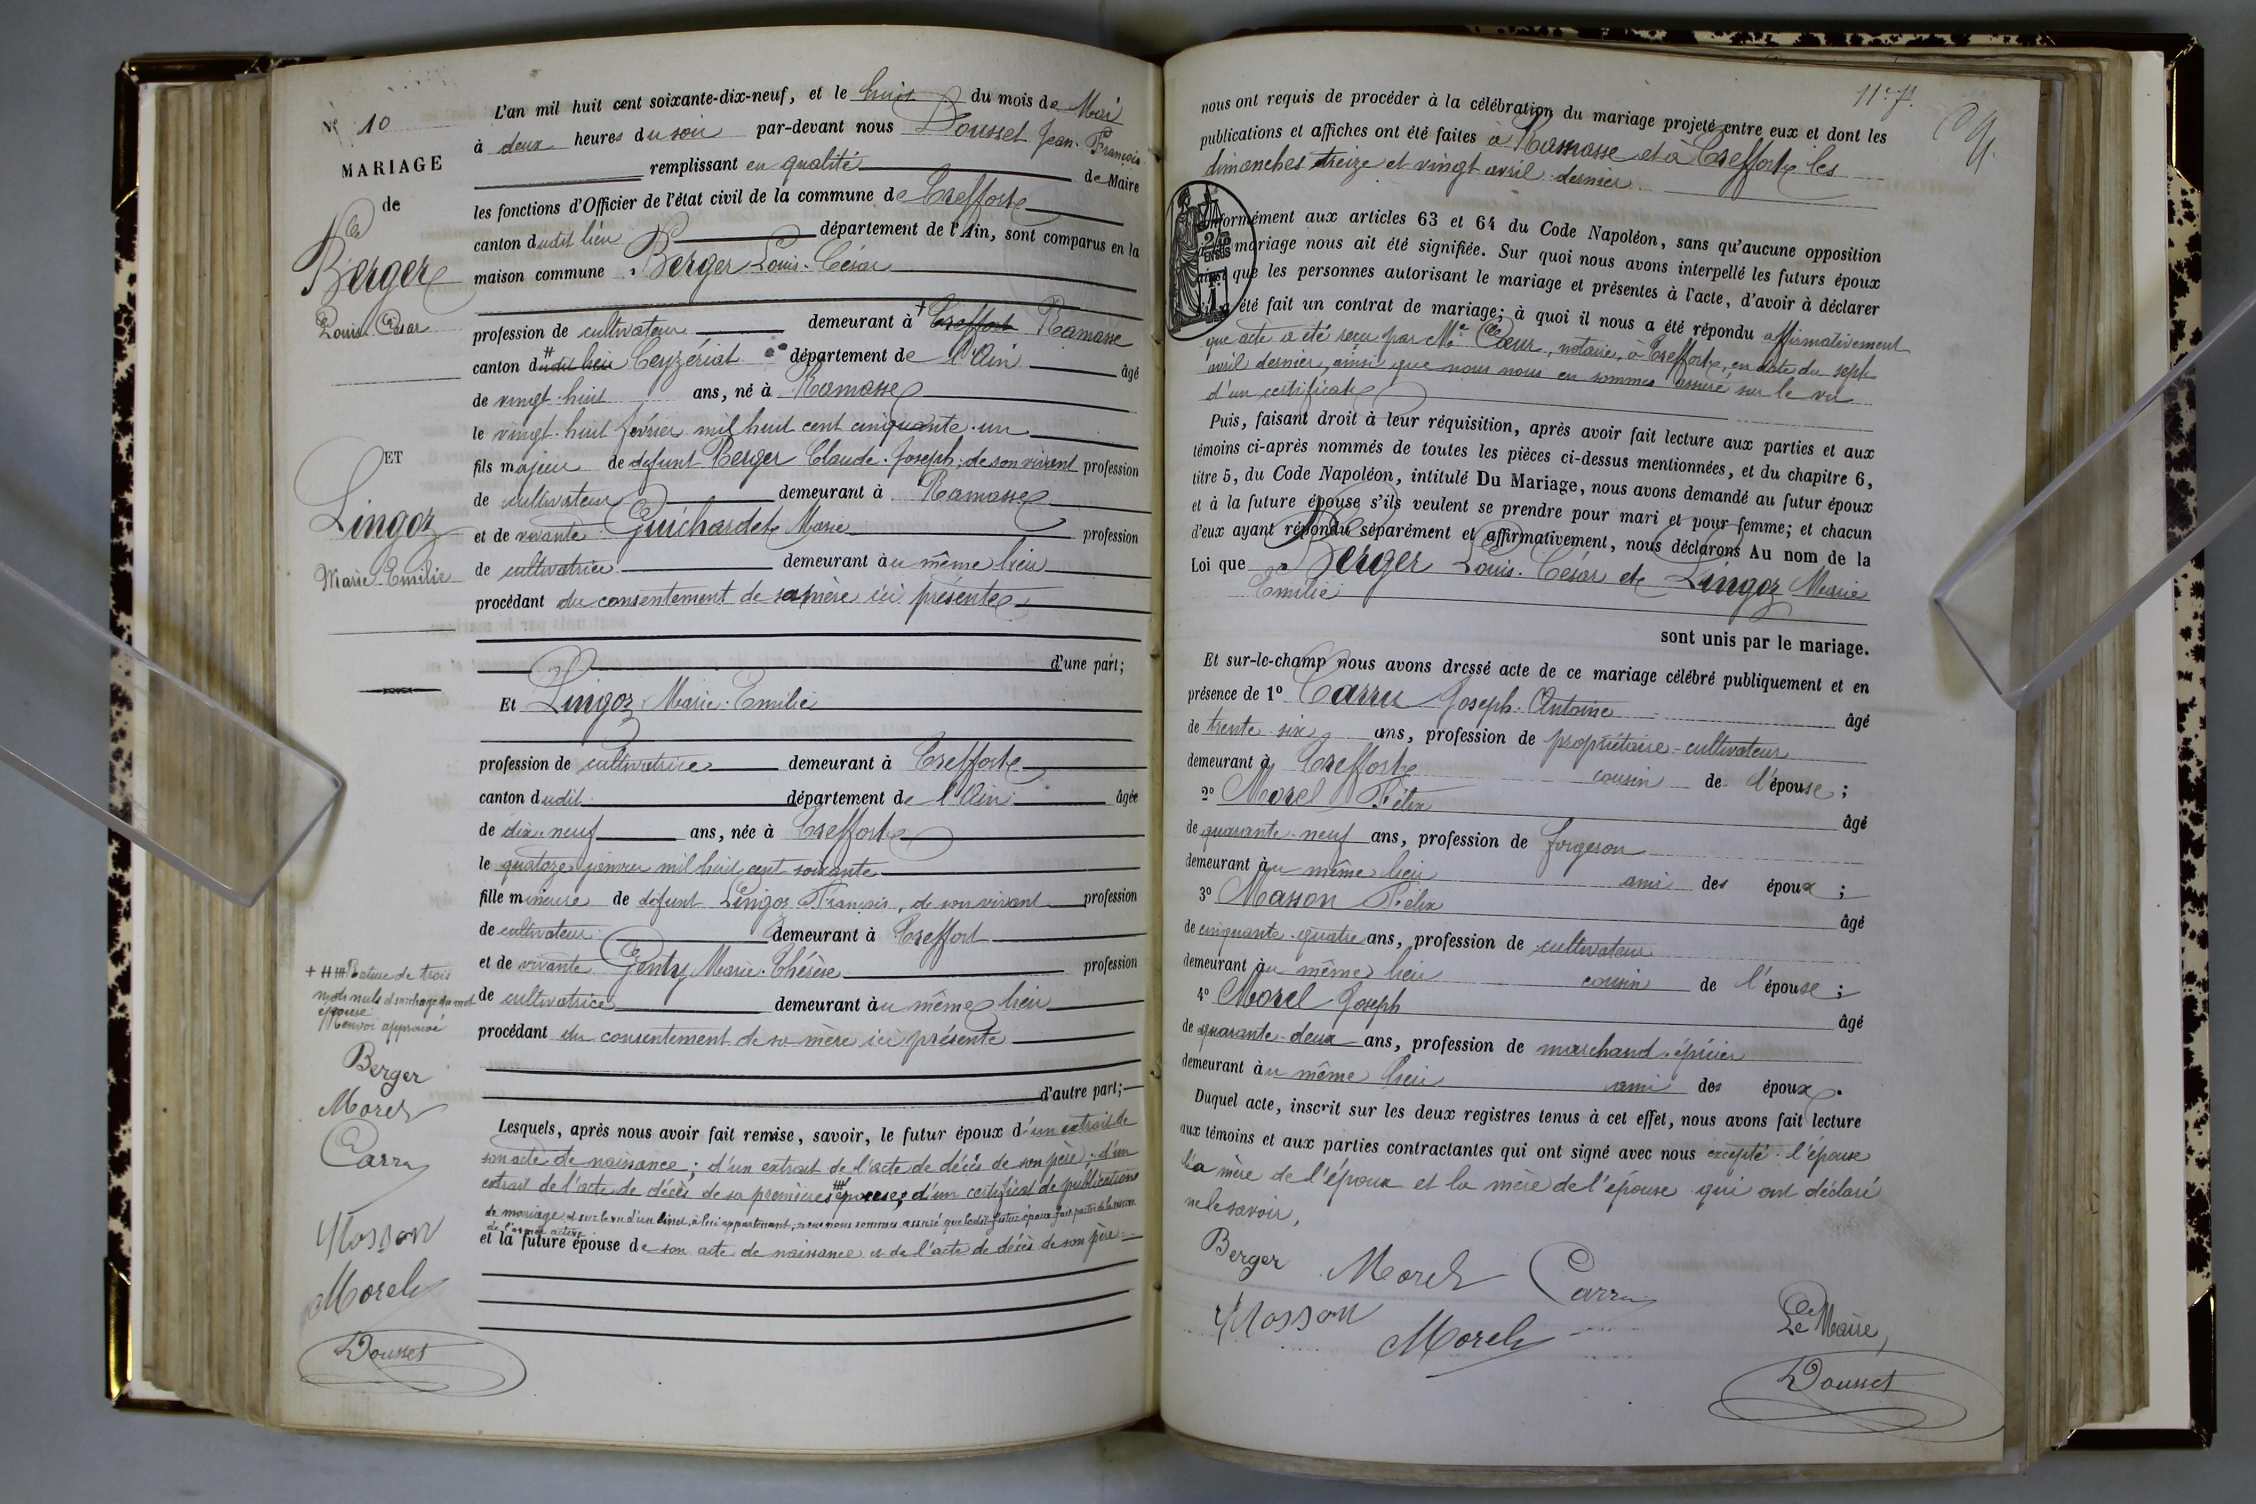 N° 10
MARIAGE
de
Berger
Louis César
ET
Lingoz
Marie-Emilie
+ # ## Rature de trois
mots nuls et surcharge du mot
épouse
Renvoi approuvé
Berger
Morel
Carru
Masson
Morel
Dousset
L'an mil huit cent soixante-dix-neuf, et le huit du mois de Mai
à deux heures du soir par-devant nous Dousset Jean-François
remplissant en qualité de Maire
les fonctions d'Officier de l'état civil de la commune de Treffort
canton dudit lieu département de l'Ain, sont comparus en la
maison commune Berger Louis-César
profession de cultivateur demeurant à + Treffort Ramasse
canton d#udit lieu Ceyzériat département de l'Ain âgé
de vingt-huit ans, né à Ramasse
le vingt-huit février mil huit cent cinquante-un
fils majeur de défunt Berger Claude-Joseph, de son vivant profession
de cultivateur demeurant à Ramasse
et de vivante Guichardet Marie profession
de cultivatrice demeurant au même lieu
procédant du consentement de sa mère ici présente
d'une part;
Et Lingoz Marie-Emilie
profession de cultivatrice demeurant à Treffort
canton dudit département de l'Ain âgée
de dix-neuf ans, née à Treffort
le quatorze janvier mil huit cent soixante
fille mineure de défunt Lingoz François, de son vivant profession
de cultivateur demeurant à Treffort
et de vivante Genty Marie-Thérèse profession
de cultivatrice demeurant au même lieu
procédant du consentement de sa mère ici présente
d'autre part;
Lesquels, après nous avoir fait remise, savoir, le futur époux d'un extrait de
son acte de naissance; d'un extrait de l'acte de décès de son père; d'un
extrait de l'acte de décès de sa première ## épouse; d'un certificat de publications
de mariage, et sur le vu d'un livret, à lui appartenant, nous nous sommes assuré que ledit futur époux fait partie de la réserve
de l'armée active
et la future épouse de son acte de naissance et de l'acte de décès de son père
11e f.
nous ont requis de procéder à la célébration du mariage projeté entre eux et dont les
publications et affiches ont été faites à Ramasse et à Treffort les
dimanches treize et vingt avril dernier
conformément aux articles 63 et 64 du Code Napoléon, sans qu'aucune opposition
mariage nous ait été signifiée. Sur quoi nous avons interpellé les futurs époux
ainsi que les personnes autorisant le mariage et présentes à l'acte, d'avoir à déclarer
été fait un contrat de mariage; à quoi il nous a été répondu affirmativement
que acte a été reçu par Me Cœur, notaire, à Treffort, en date du sept
avril dernier, ainsi que nous nous en sommes assuré sur le vu
d'un certificat
Puis, faisant droit à leur réquisition, après avoir fait lecture aux parties et aux
témoins ci-après nommés de toutes les pièces ci-dessus mentionnées, et du chapitre 6,
titre 5, du Code Napoléon, intitulé Du Mariage, nous avons demandé au futur époux
et à la future épouse s'ils veulent se prendre pour mari et pour femme; et chacun
d'eux ayant répondu séparément et affirmativement, nous déclarons Au nom de la
Loi que Berger Louis-César et Lingoz Marie
Emilie
sont unis par le mariage.
Et sur-le-champ nous avons dressé acte de ce mariage célébré publiquement et en
présence de 1° Carru Joseph-Antoine âgé
de trente-six ans, profession de propriétaire-cultivateur
demeurant à Treffort cousin de l'épouse;
2° Morel Félix âgé
de quarante-neuf ans, profession de forgeron
demeurant au même lieu ami des époux;
3° Masson Félix âgé
de cinquante-quatre ans, profession de cultivateur
demeurant au même lieu cousin de l'épouse;
4° Morel Joseph âgé
de quarante-deux ans, profession de marchand-épicier
demeurant au même lieu ami des époux.
Duquel acte, inscrit sur les deux registres tenus à cet effet, nous avons fait lecture
aux témoins et aux parties contractantes qui ont signé avec nous excepté l'épouse
la mère de l'époux et la mère de l'épouse qui ont déclaré
ne le savoir,
Berger Morel Carru
Masson Morel
Le Maire,
Dousset